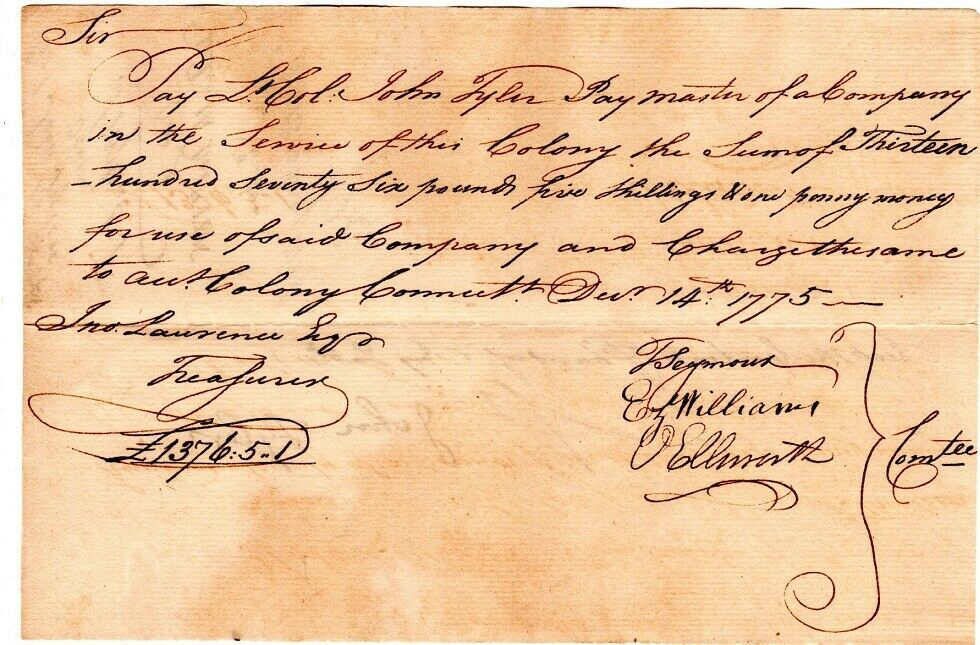 Sir
Pay Lt. Col: John Tyler Pay master of a Company
in the Service of this Colony the Sum of Thirteen
hundred Seventy Six pounds five Shillings & one penny money
for use of said Company and Charge the same
to acct. Colony Connectt. Decr. 14th. 1775
Jno. Lawrence Esqr
Treasurer
£1376:5..1
T Seymour
Ez Williams
O Ellsworth
Comtee